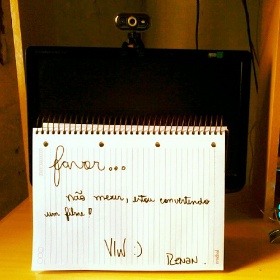 favor...
não mexer, estou convertendo
um filme!
VLW :)
RENAN.